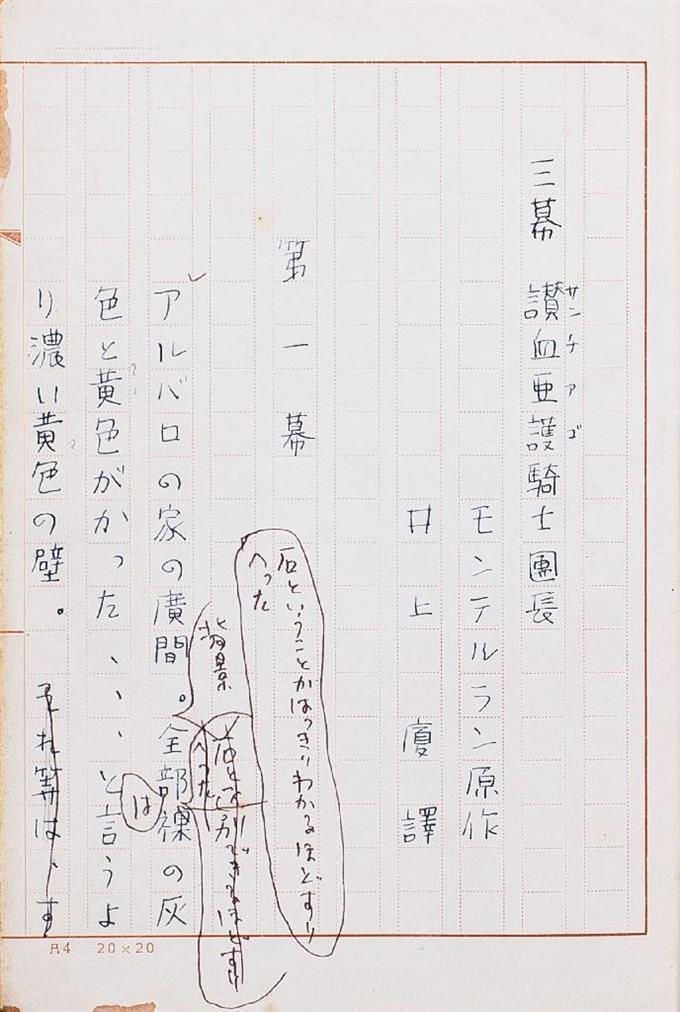 三幕 讃血亜護騎士團長
サンチアゴ
モンテルラン原作
井上廈譯
第一幕
石ということがはっきりわかるほどすり
へった
背景
石と区別できるほどすり
へった
アルバロの家の廣間。全部裸の灰
は
色と黄色がかった、、、と言うよ
り濃い黄色の壁。それ等は、す
A4 20×20